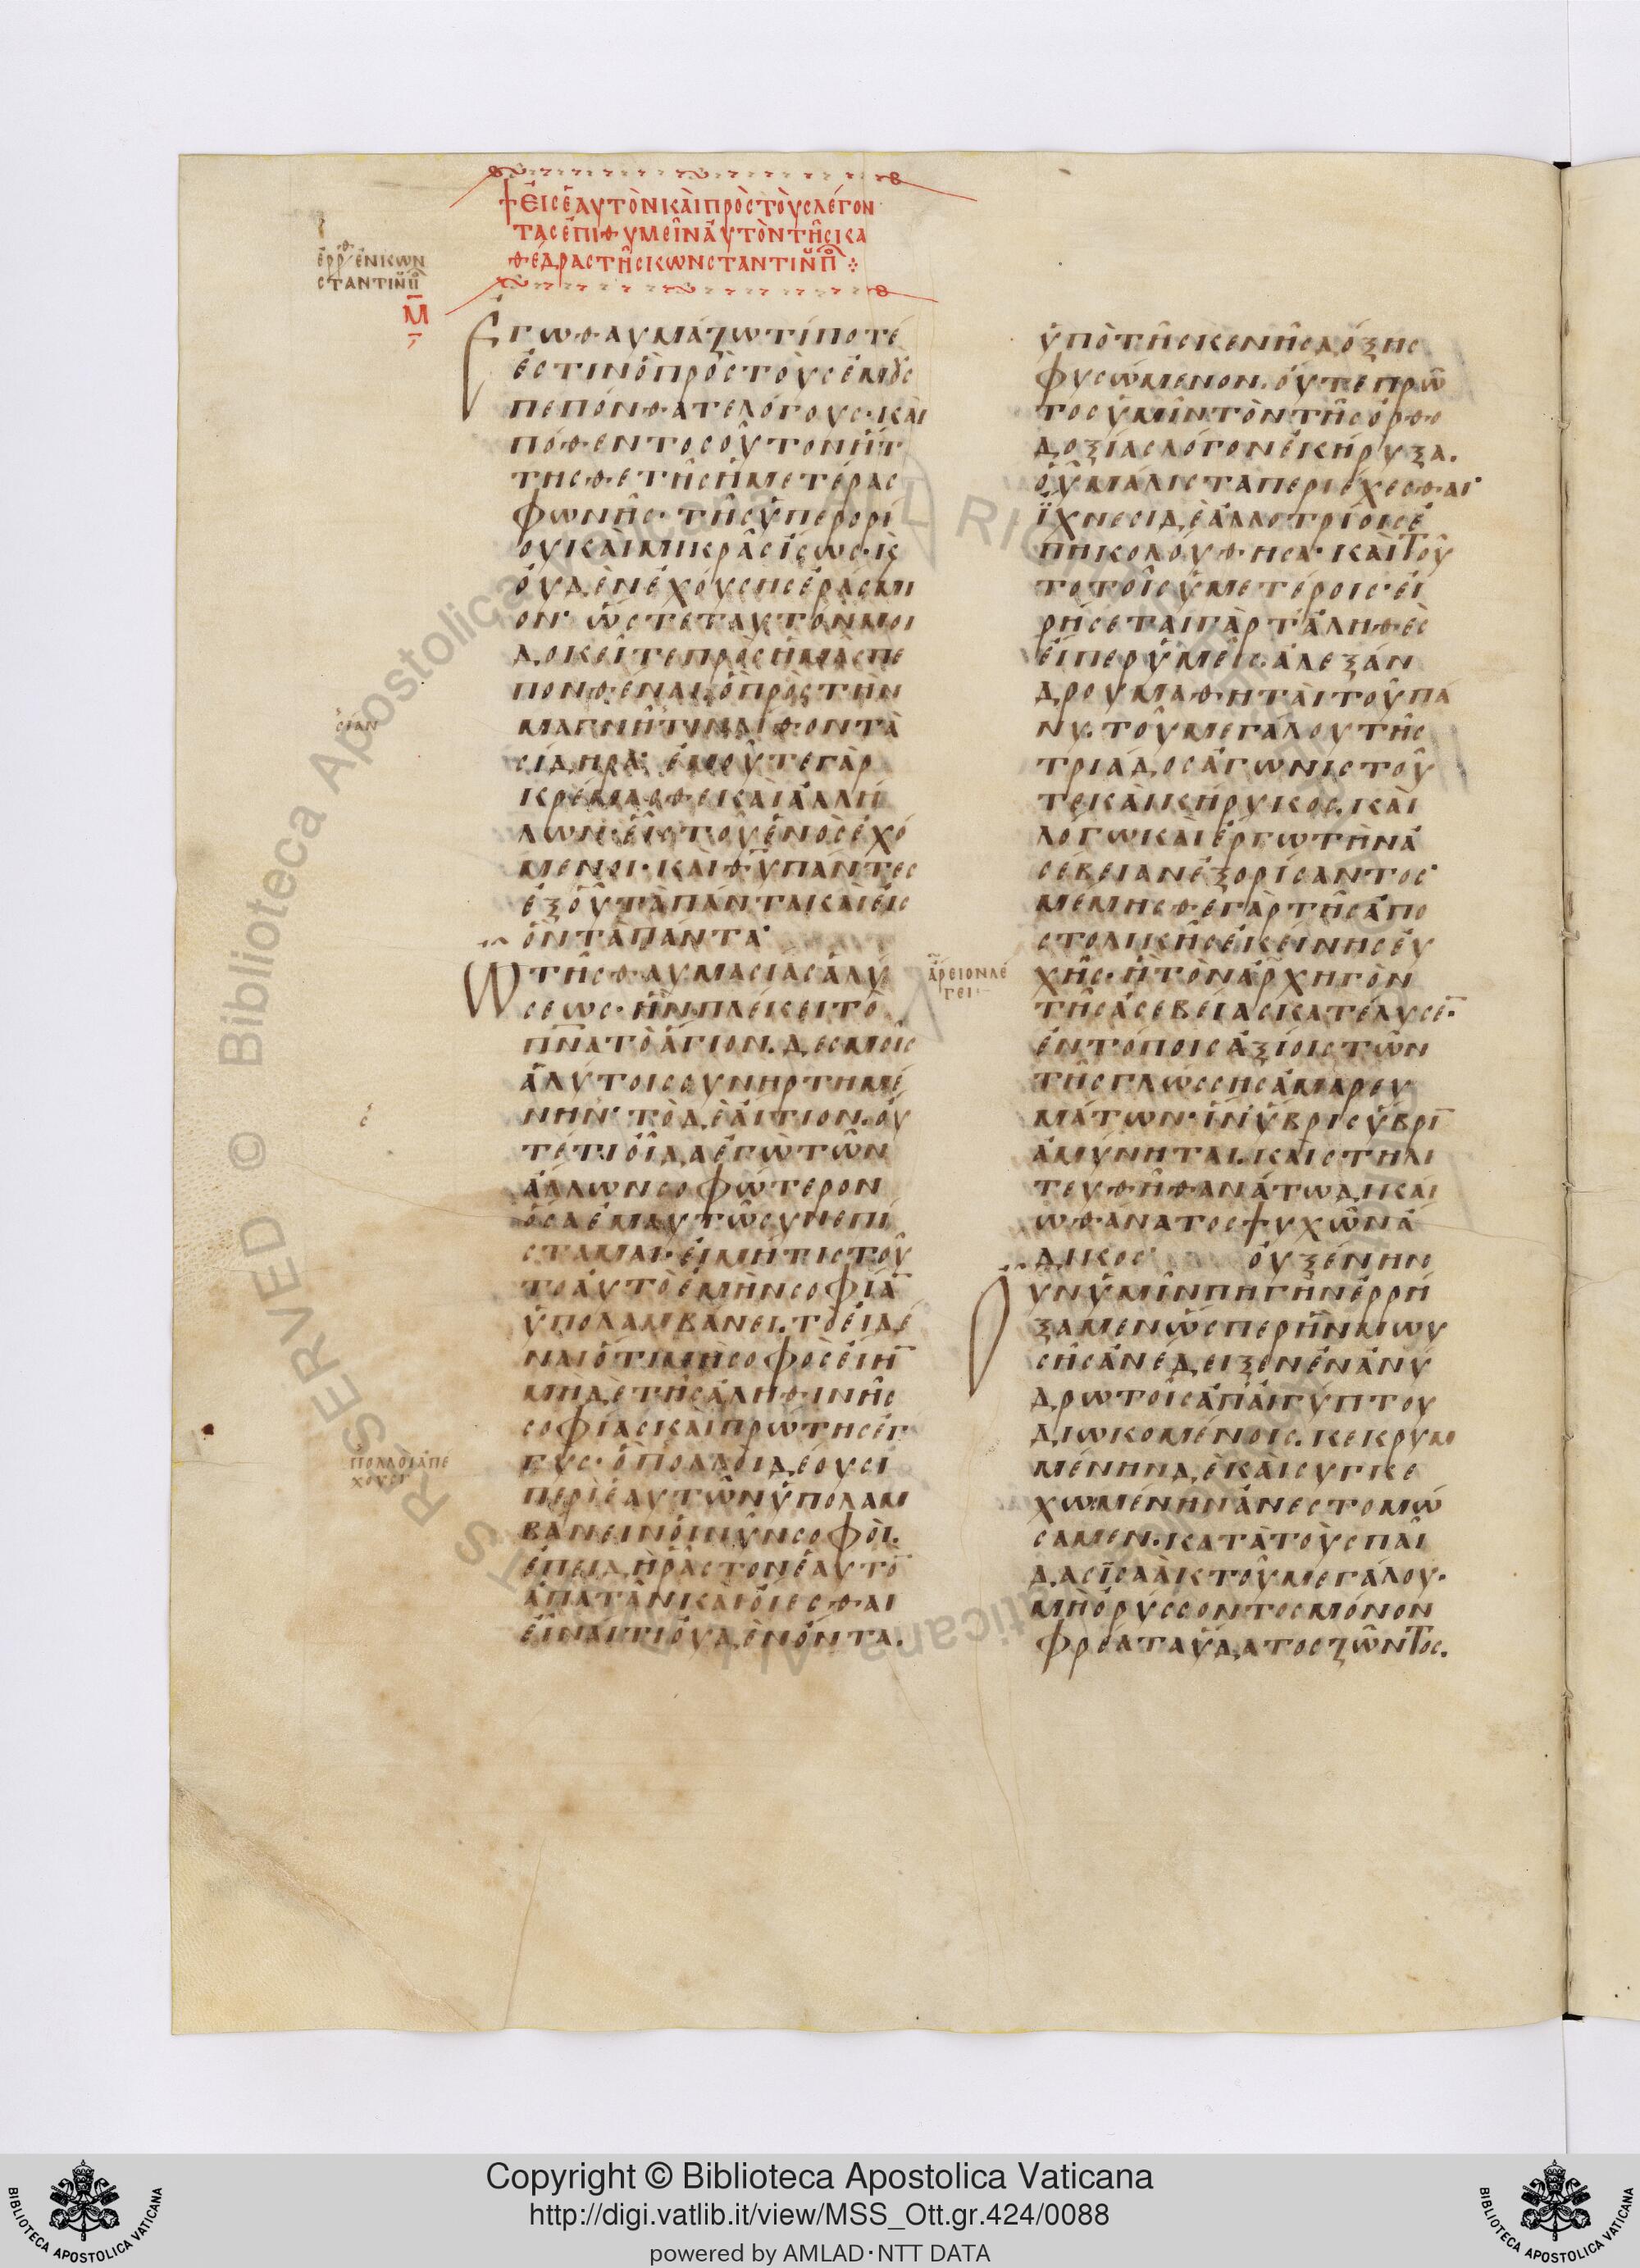 † ΕἸΣ ἙΑΥΤῸΝ ΚΑῚ ΠΡῸΣ ΤΟῪΣ ΛΈΓΟΝ
ΤΑΣ ἘΠΙΘΥΜΕῖΝ ΑΥΤῸΝ ΤῆΣ ΚΑ
ΘΈΔΡΑΣ ΤῆΣ ΚΩΝΣΤΑΝΤΙΝΠ
ἐρρ ἐν κων
σταντιν
Μ
Ἐγὼ θαυμάζω τί ποτέ
ἐστιν ὃ πρὸς τοὺς ἐμοὺς
πεπόνθατε λόγους· καὶ
πόθεν τοσοῦτον ἥτ
τησθε τῆς ἡμετέρας
φωνῆς· τῆς ὑπερορί
ου καὶ μικρᾶς ἴσως· κ
οὐδὲν ἐχούσης ἐράσμι
ον· ὥστε ταυτόν μοι
δοκεῖτε πρὸς ἡμᾶς πε
πονθέναι, ὃ πρὸς τὴν
μαγνῆτιν λίθον τὰ
σίδηρα· ἐμοῦ τε γὰρ
κρέμασθε καὶ ἀλλή
λων· εἷς τοῦ ἑνὸς ἐχό
μενοι· καὶ θυ πάντες
ἐξ οὗ τὰ πάντα καὶ εἰς
ὃν τὰ πάντα·
Ὢ τῆς θαυμασίας ἁλύ
σεως· ἣν πλέκει τὸ
πνα τὸ ἅγιον. δεσμοῖς
ἀλύτοις συνηρτημέ
νην· τὸ δὲ αἴτιον. οὔ
τε τι οἶδα ἐγὼ τῶν
ἄλλων σοφώτερον
ὅσα ἐμαυτῷ συνεπί
σταμαι· εἰ μή τις τοῦ
το αὐτὸ ἐμὴν σοφίαν
ὑπολαμβάνει. τὸ εἰδέ
ναι ὅτι μὴ σοφὸς εἴην
μηδὲ τῆς ἀληθινῆς
σοφίας καὶ πρώτης ἐγ
γύς· ὃ πολλοὶ δέουσι
περὶ ἑαυτῶν ὑπολαμ
βάνειν οἱ νῦν σοφοί.
ἐπειδὴ ῥᾷστον ἑαυτὸν
ἀπατᾶν καὶ οἴεσθαι
εἶναί τι οὐδὲν ὄντα.
πολλοὶ ἀπέ
χουσι
ὑπὸ τῆς κενῆς δόξης
φυσώμενον. οὔτε πρῶ
τος ὑμῖν τὸν τῆς ὀρθο
δοξίας λόγον ἐκήρυξα.
οὗ μάλιστα περιέχεσθαι·
ἴχνεσι δὲ ἀλλοτρίοις ἐ
πηκολούθησα· καὶ τοῦ
το τοῖς ὑμετέροις· εἰ
ρήσεται γὰρ τἀληθὲς
εἴπερ ὑμεῖς ἀλεξάν
δρου μαθηταὶ τοῦ πά
νυ. τοῦ μεγάλου τῆς
τριάδος ἀγωνιστοῦ
τε καὶ κήρυκος. καὶ
λόγω καὶ ἔργω τὴν ἀ
σέβειαν ἐξορίσαντος·
μέμνησθε γὰρ τῆς ἀπο
στολικῆς ἐκείνης εὐ
χῆς· ἣ τὸν ἀρχηγὸν
τῆς ἀσεβείας κατέλυσεν·
ἐν τόποις ἀξίοις τῶν
τῆς γλώσσης ἀμαρευ
μάτων· ἵν ὕβρις ὕβριν
ἀμύνηται. καὶ στηλι
τευθῇ θανάτω δικαί
ω θάνατος ψυχῶν ἄ
δικος οὐ ξένην
οὖν ὑμῖν πηγὴν ἐρρή
ξαμεν ὥσπερ ἣν μωυ
σῆς ἀνέδειξεν ἐν ἀνύ
δρω τοῖς ἀπ αἰγύπτου
διωκομένοις. κεκρυμ
μένην δὲ καὶ συγκε
χωμένην ἀνεστομώ
σαμεν. κατὰ τοὺς παῖ
δας ἰσαὰκ τοῦ μεγάλου·
μὴ ὀρύσσοντος μόνον
φρέατα ὕδατος ζῶντος.
ἄρειον λέ
γει
RISERVED © Biblioteca Apostolica Vaticana ALL RIGHTS
Copyright © Biblioteca Apostolica Vaticana
http://digi.vatlib.it/view/MSS_Ott.gr.424/0088
powered by AMLAD·NTT DATA
BIBLIOTECA APOSTOLICA VATICANA
BIBLIOTECA APOSTOLICA VATICANA